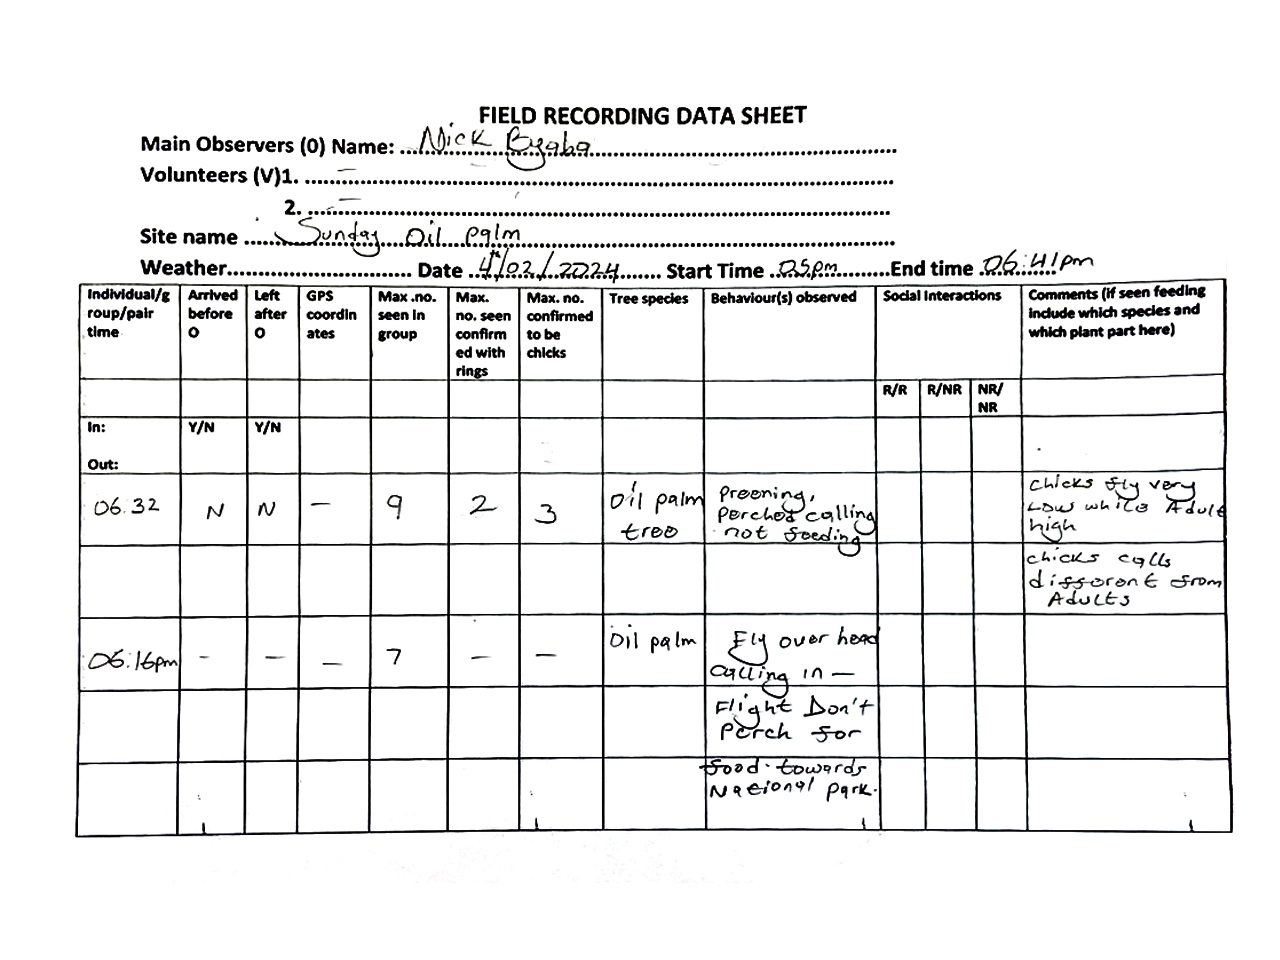 FIELD RECORDING DATA SHEET
Main Observers (0) Name: ...Nick Byaba...
Volunteers (V)1. ...–...
2. ...–...
Site name ...Sunday Oil palm...
Weather............ Date ..4th/02/2024...... Start Time ..05pm.........End time .06:41pm
Individual/g roup/pair time
Arrived before O
Left after O
GPS coordin ates
Max .no. seen in group
Max. no. seen confirm ed with rings
Max. no. confirmed to be chicks
Tree species
Behaviour(s) observed
Social Interactions
Comments (if seen feeding include which species and which plant part here)
R/R R/NR NR/ NR
In: Y/N Y/N
Out:
06:32 N N – 9 2 3
Oil palm
tree
Preening,
Perched calling
not feeding
chicks fly very
Low while Adult
high
chicks calls
different from
Adults
06:16pm – – – 7 – –
Oil palm
Fly over head
Calling in –
Flight Don't
Perch for
food. towards
National park.